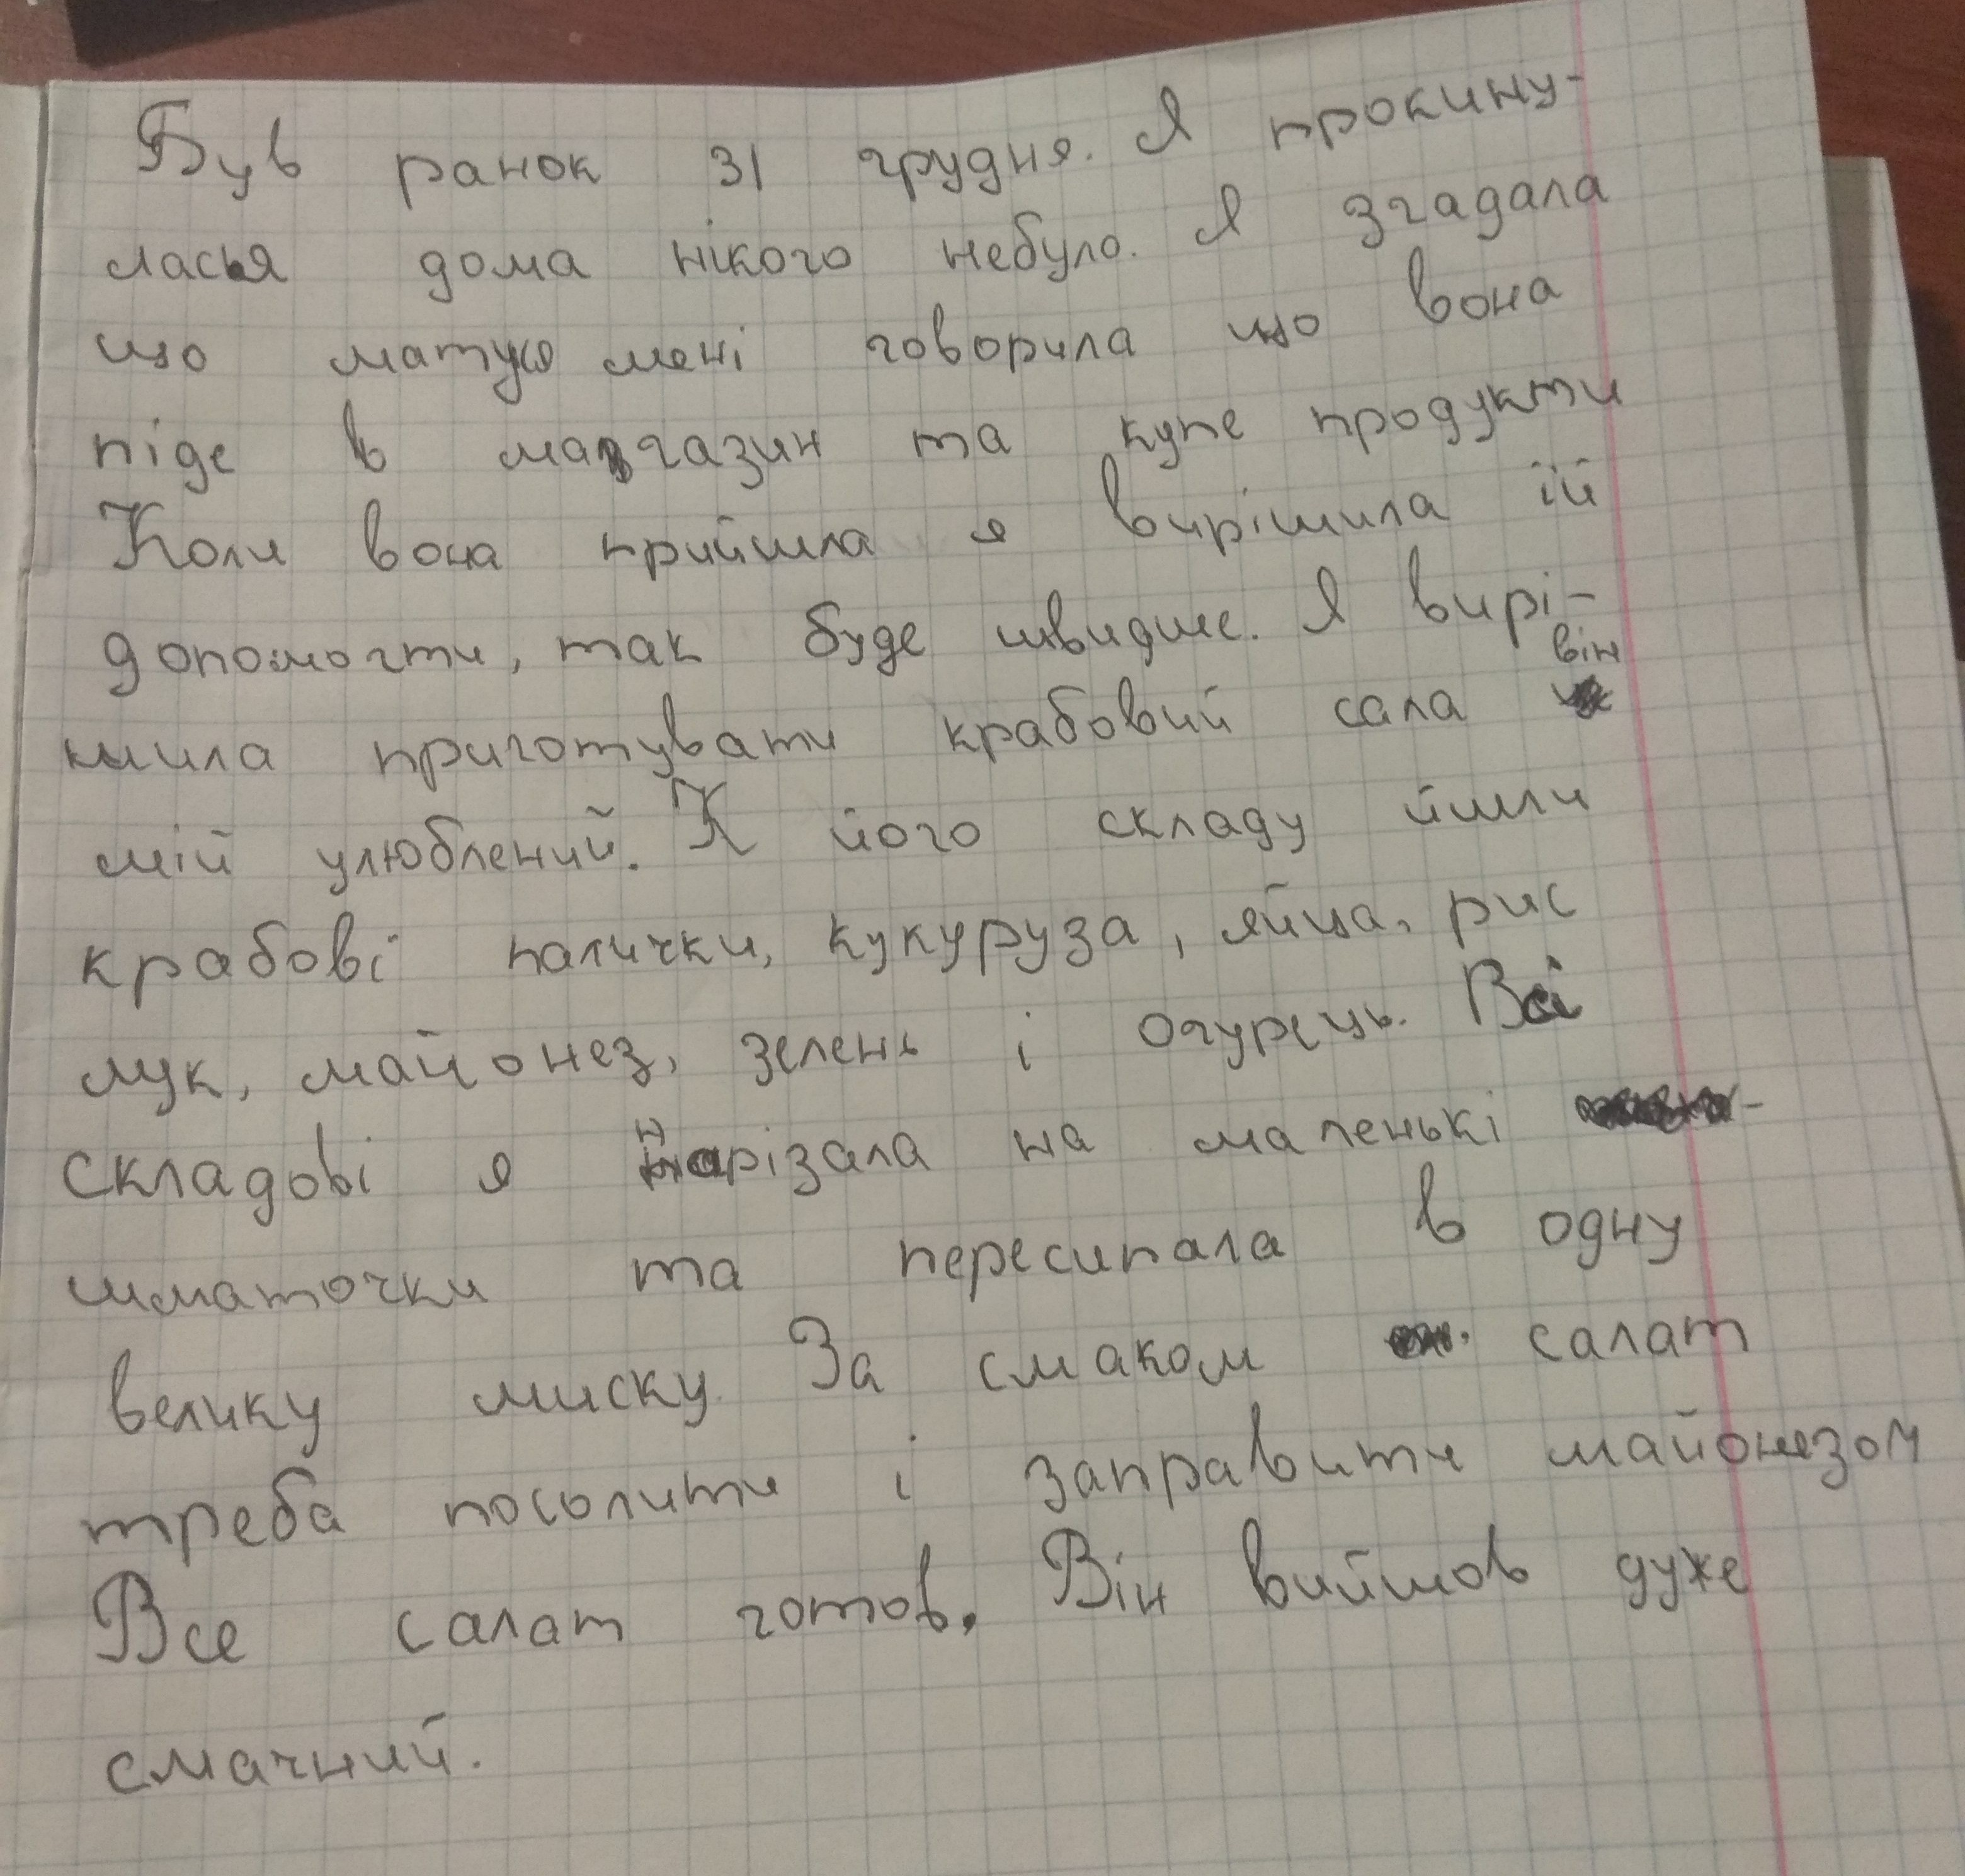 Був ранок 31 грудня. Я прокину-
лася дома нікого небуло. Я згадала
що матуся мені говорила що вона
піде в магазин та купе продукти
Коли вона прийшла я вирішила їй
допомогти, так буде швидше. Я вирі-
шила приготувати крабовий сала він
мій улюблений. К його складу йшли
крабові палички, кукуруза, яйца, рис
лук, майонез, зелень і огурець. Всі
складові я нарізала на маленькі
шматочки та пересипала в одну
велику миску. За смаком салат
треба посолити і заправити майонезом
Все салат готов. Він вийшов дуже
смачний.